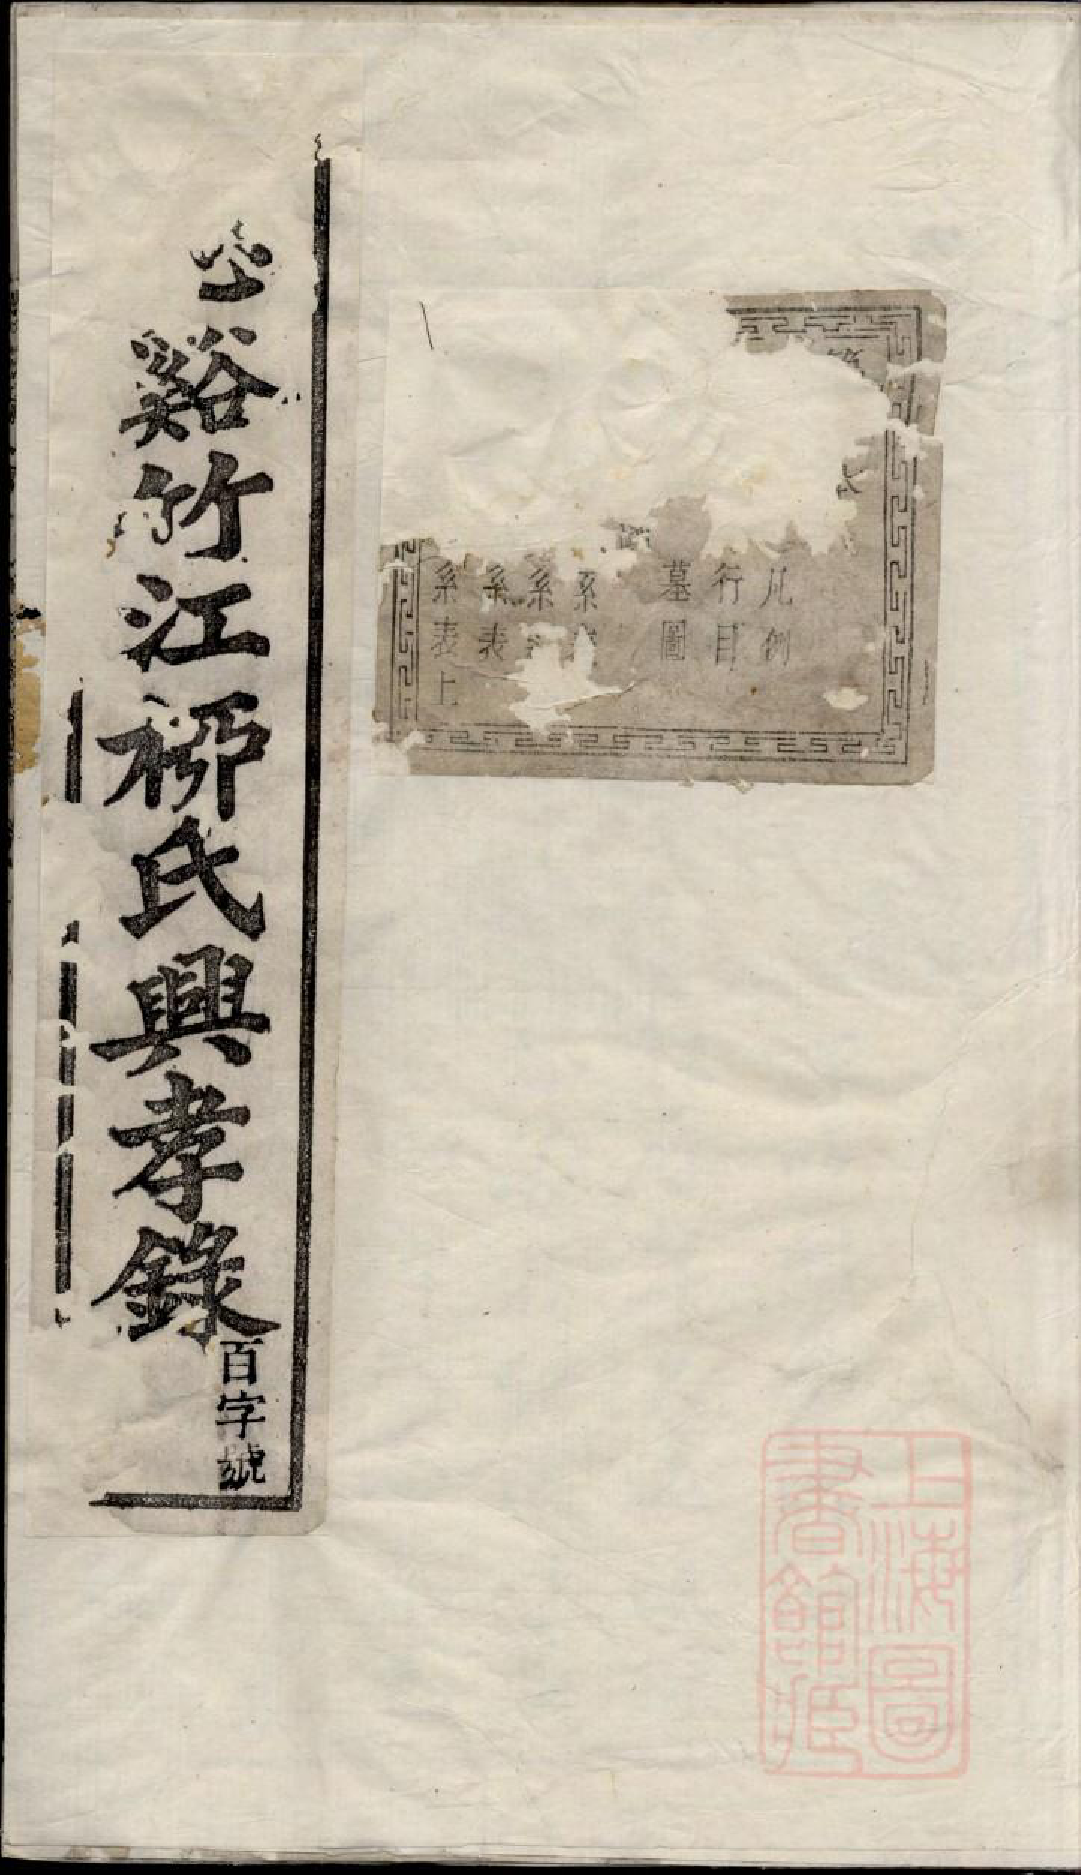 凡例
行目
墓圖
系
系
系表
系表上
谿竹江桺氏興孝錄
百字號
上海圖
書館藏